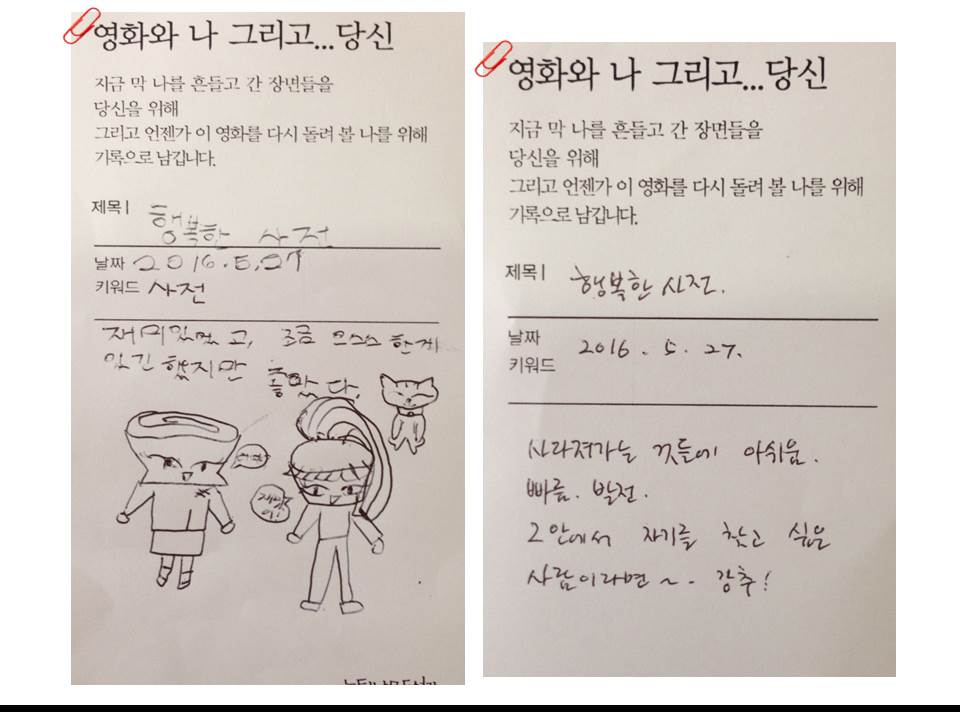 영화와 나 그리고...당신
지금 막 나를 흔들고 간 장면들을
당신을 위해
그리고 언젠가 이 영화를 다시 돌려 볼 나를 위해
기록으로 남깁니다.
제목 | 행복한 사전
날짜 2016.5.27
키워드 사전
재미있었고, 조금 으스스 한게
있긴 했지만 좋았다.
영화와 나 그리고...당신
지금 막 나를 흔들고 간 장면들을
당신을 위해
그리고 언젠가 이 영화를 다시 돌려 볼 나를 위해
기록으로 남깁니다.
제목 | 행복한 사전.
날짜 2016. 5. 27.
키워드
사라져가는 것들에 아쉬움.
빠름. 발전.
그 안에서 자기를 찾고 싶은
사람이라면~. 강추!